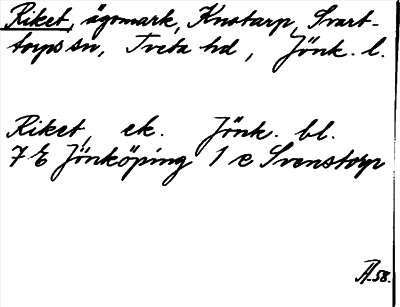 Riket, ägomark, Knutarp, Svart-
torps sn, Tveta hd, Jönk. l.
Riket, ek. Jönk. bl.
7 E Jönköping 1 e Svenstorp
Å-58.